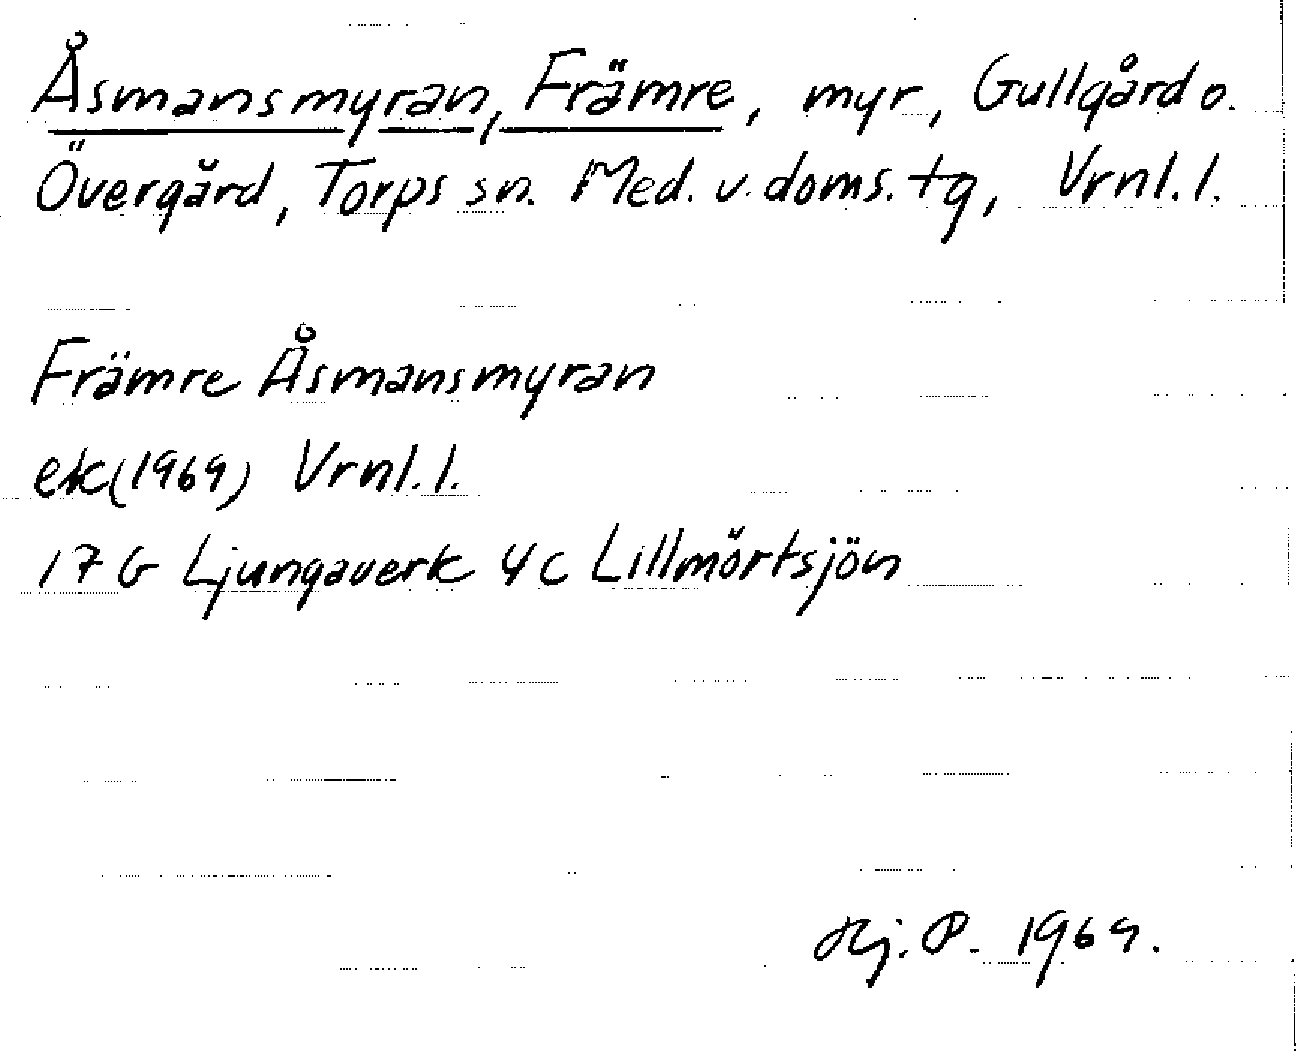 Åsmansmyran, Främre, myr, Gullgård o.
Övergård, Torps sn. Med. v. doms. tg, Vrnl. l.
Främre Åsmansmyran
ek (1969) Vrnl. l.
17 G Ljungaverk 4c Lillmörtsjön
Hj. P. 1969.